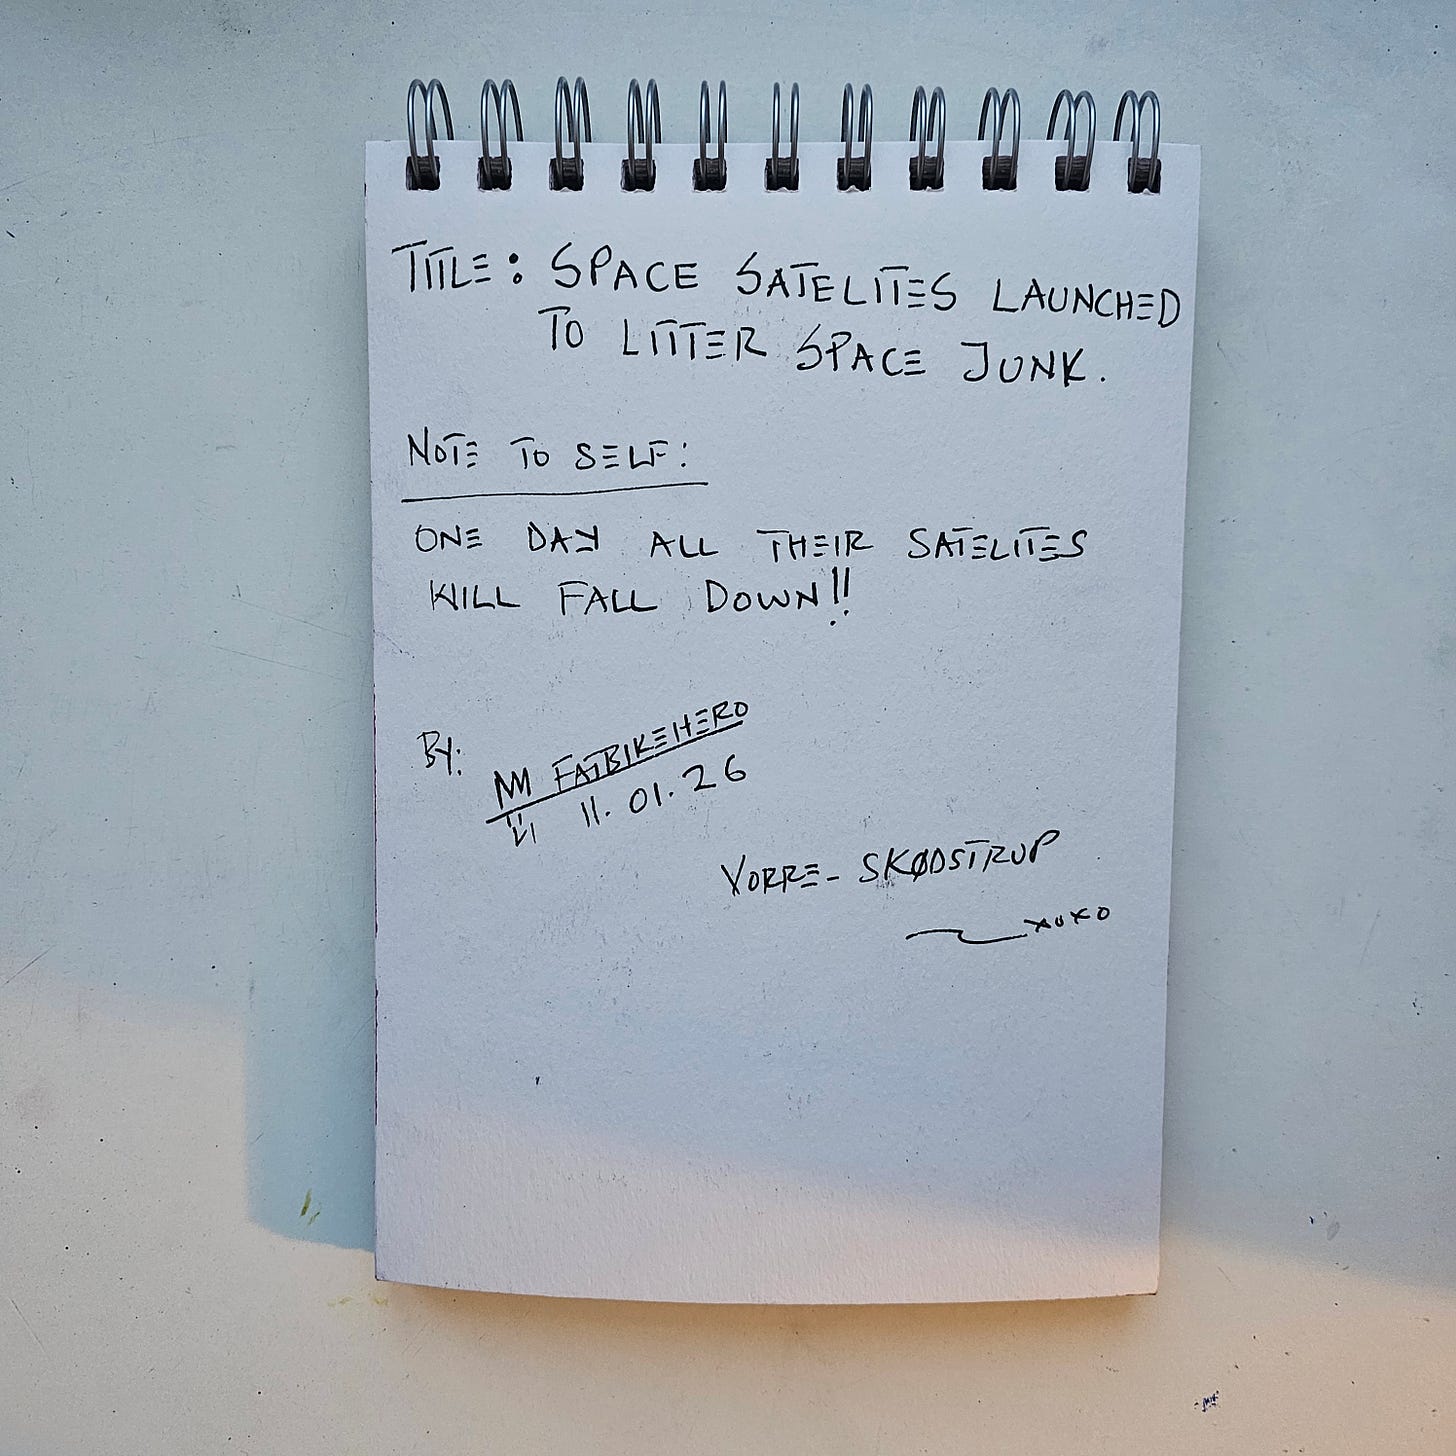 TITLE: SPACE SATELITES LAUNCHED
TO LITTER SPACE JUNK.
NOTE TO SELF:
ONE DAY ALL THEIR SATELITES
WILL FALL DOWN!!
BY: FATBIKEHERO
11.01.26
VORRE- SKØDSTRUP
XOXO